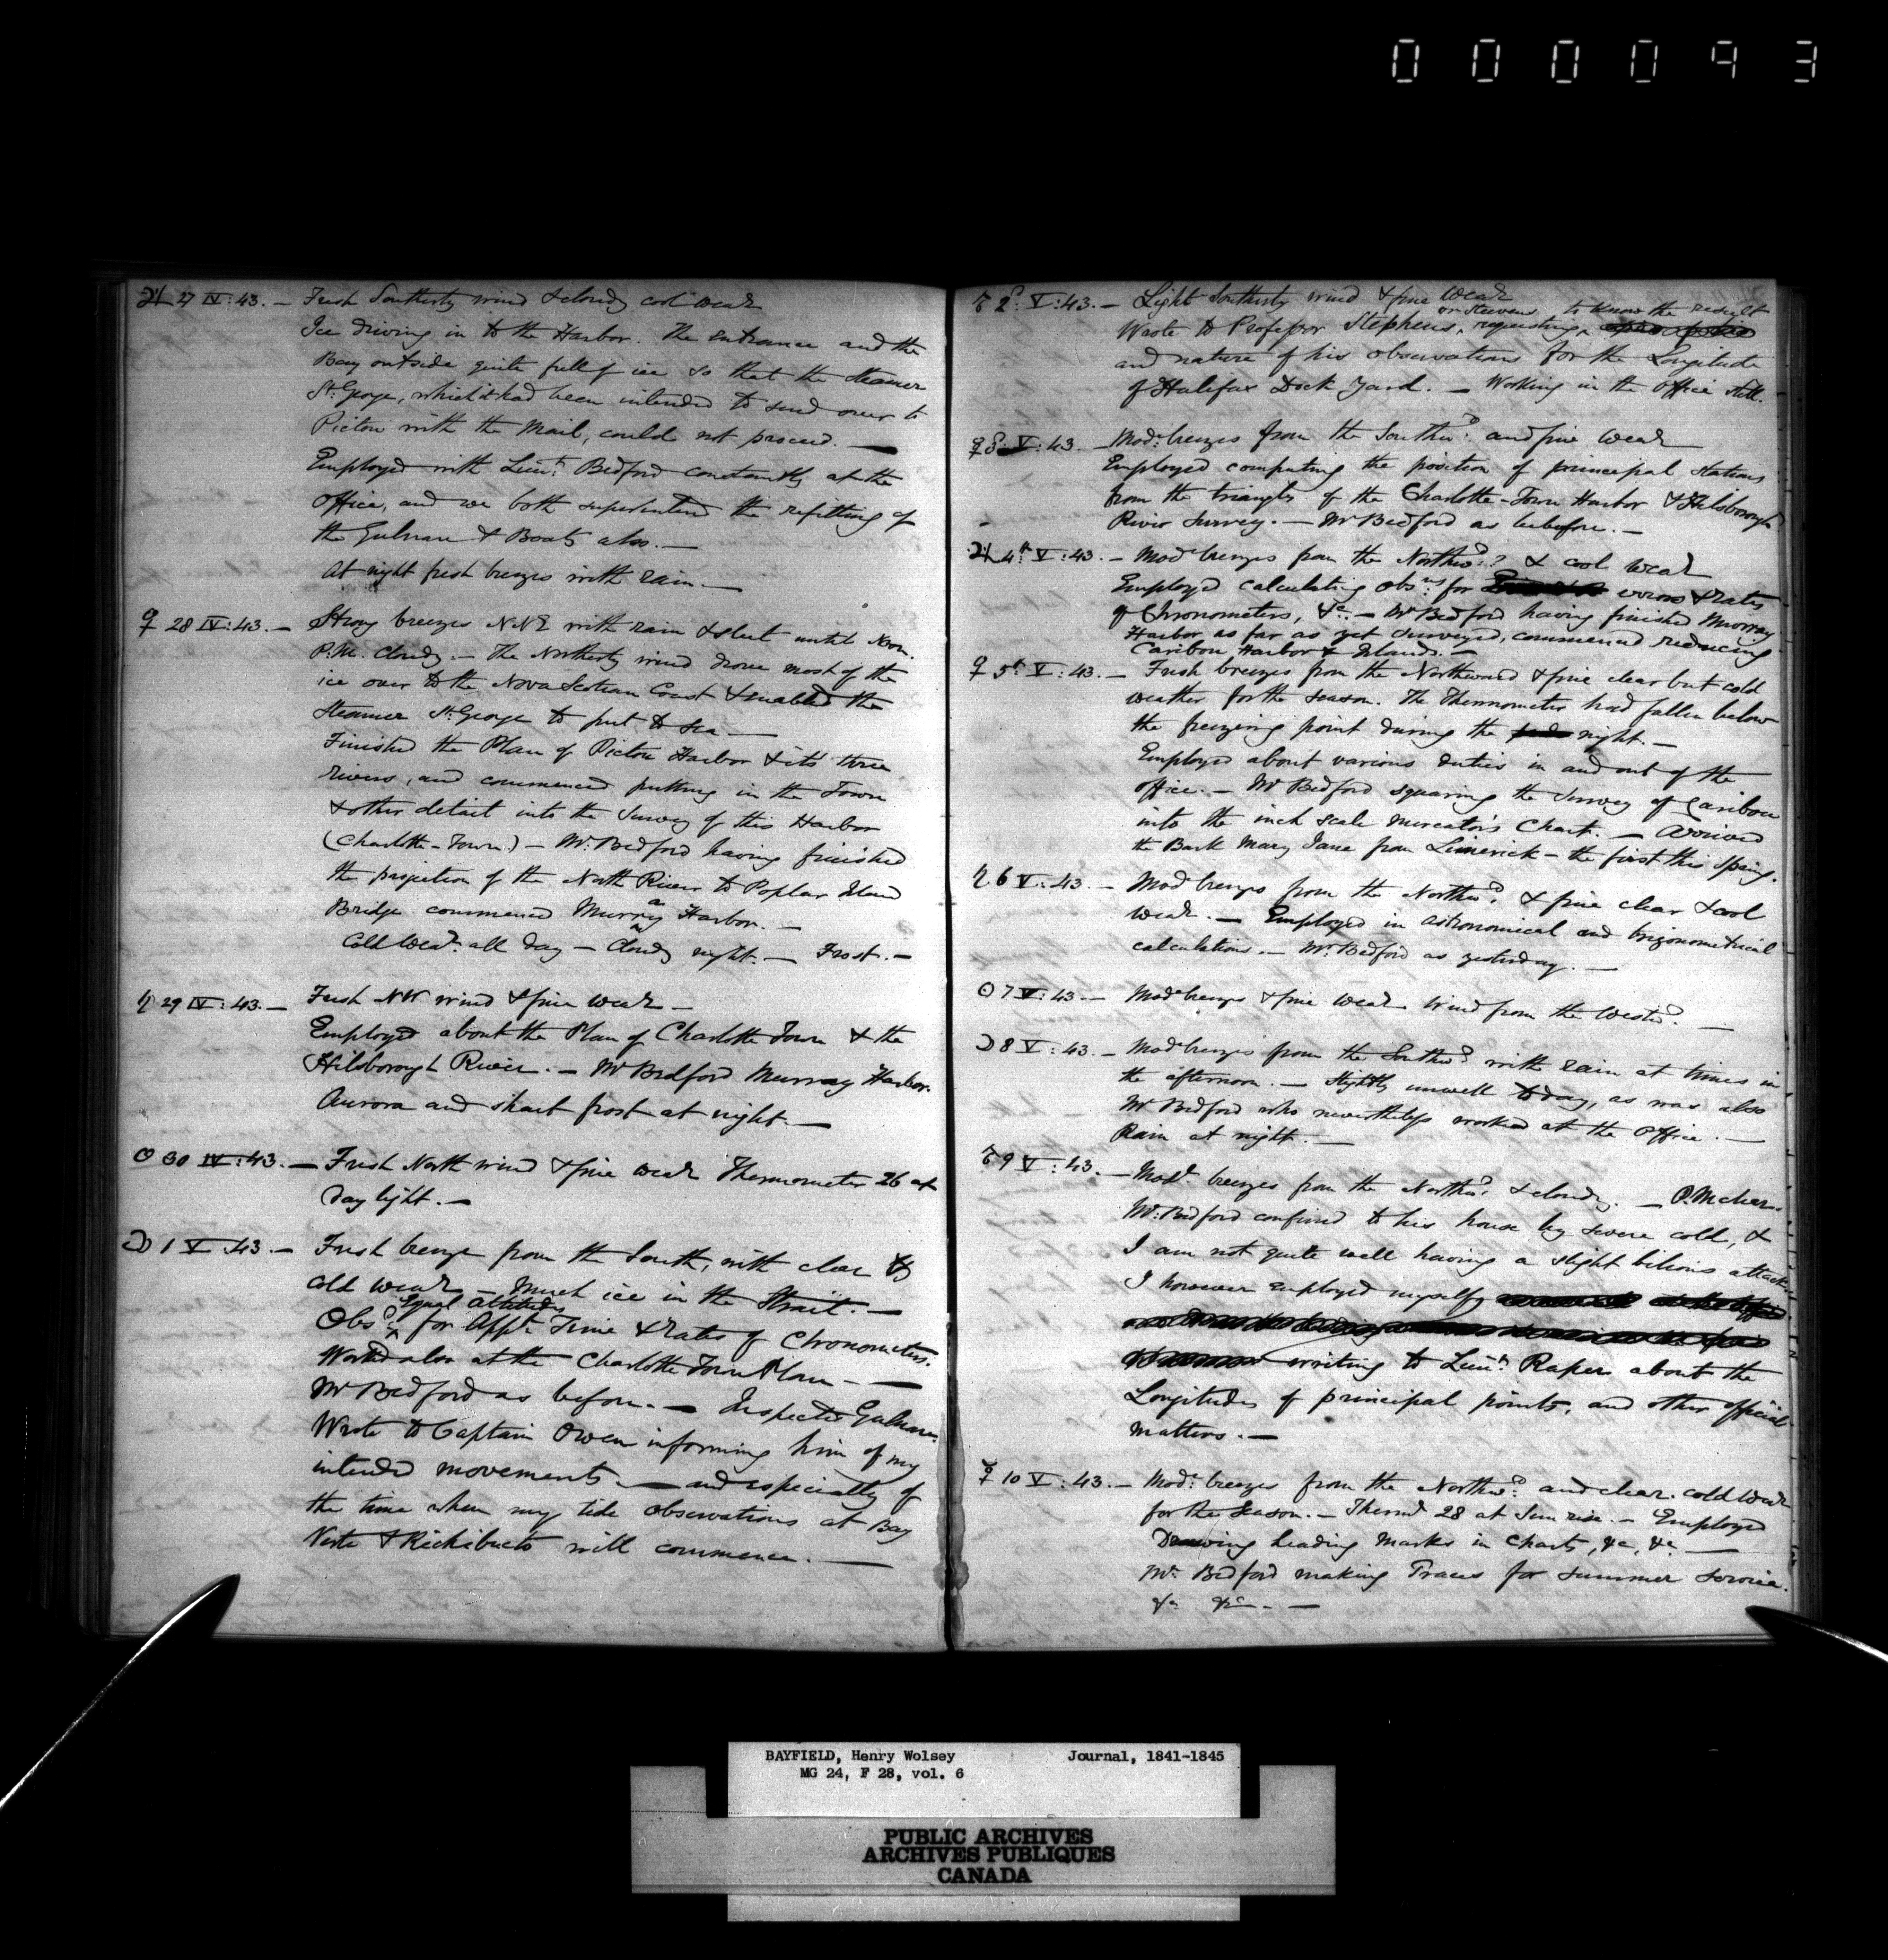 000093
♃ 27 IV: 43. — Fresh Southerly wind & cloudy cool Wear
Ice driving in to the Harbor. The entrance and the
Bay outside quite full of ice so that the steamer
St. George, which it had been intended to send over to
Pictou with the Mail, could not proceed. —
Employed with Lieut. Bedford constantly at the
Office, and we both superintend the refitting of
the Gulnare & Boats also. —
At night fresh breezes with rain. —
♀ 28 IV: 43. — Strong breezes NNE with rain & sleet until Noon.
P.M. Cloudy. — The Northerly wind drove most of the
ice over to the Nova Scotian Coast & enabled the
Steamer St. George to put to Sea —
Finished the Plan of Pictou Harbor & its three
rivers, and commenced putting in the Town
& other detail into the Survey of this Harbor
(Charlotte-Town.) — Mr. Bedford having finished
the projection of the North River to Poplar Island
Bridge commenced Murray Harbor. —
Cold Wear. all day — Cloudy night. — Frost. —
♄ 29 IV: 43. — Fresh NW wind & fine Wear —
Employed about the Plan of Charlotte Town & the
Hilsborough River. — Mr Bedford Murray Harbor.
Aurora and sharp frost at night. —
☉ 30 IV: 43. — Fresh North wind & fine Wear Thermometer 26 at
Day light. —
☽ 1 V: 43. — Fresh breeze from the South, with clear &
Cold Wear — Much ice in the Strait. —
Equal Altitudes
Obsd for Appt Time & Rates of Chronometers.
Worked also at the Charlotte Town Plan — —
Mr Bedford as before. — Inspected Gulnare.
Wrote to Captain Owen informing him of my
intended movements. — and especially of
the time when my tide observations at Bay
Verte & Richibucto will commence. —
♂ 2d. V: 43. — Light Southerly wind & fine Wear
or Stevens to know the result
Wrote to Professor Stephens, requesting
and nature of his observations for the Longitude
of Halifax Dock Yard. — Working in the Office still.
☿ 3d. V: 43. — Modr. breezes from the Southwd. and fine Wear
Employed computing the position of principal stations
from the triangles of the Charlotte-Town Harbor & Hilsborough
River Survey. — Mr Bedford as before. —
♃ 4th V: 43. — Modr breezes from the Northwd. & cool Wear
Employed calculating Obsns. for errors & rates
of Chronometers, &c. — Mr Bedford having finished Murray
Harbor as far as yet surveyed, commenced reducing
Caribou Harbor & Islands. —
♀ 5th V: 43. — Fresh breezes from the Northward & fine clear but cold
weather for the season. The Thermometer had fallen below
the freezing point during the night. —
Employed about various duties in and out of the
Office. — Mr Bedford squaring the Survey of Caribou
into the inch scale mercator's Chart. — Arrived
the Bark Mary Jane from Limerick — the first this spring.
♄ 6 V: 43. — Modr breezes from the Northwd. & fine clear & cool
Wear. — Employed in astronomical and trigonometrical
calculations. — Mr. Bedford as yesterday. —
☉ 7 V: 43 — Modr breezes & fine Wear Wind from the Westwd. —
☽ 8 V: 43. — Modr breezes from the Southwd with rain at times in
the afternoon. — Slightly unwell to day, as was also
Mr Bedford who nevertheless worked at the Office. —
Rain at night. —
♂ 9 V: 43. — Modr. breezes from the Northwd. & cloudy. — P.M clear.
Mr. Bedford confined to his house by severe cold, &
I am not quite well having a slight bilious attack
I however employed myself
writing to Lieut. Raper about the
Longitudes of principal points, and other official
matters. —
☿ 10 V: 43. — Modr. breezes from the Northwd. and clear. cold Wear
for the Season. — Thermr 28 at Sun rise. — Employed
Drawing Leading Marks in Charts, &c, &c —
Mr. Bedford making Traces for summer service.
&c &c. —
BAYFIELD, Henry Wolsey Journal, 1841-1845
MG 24, F 28, vol. 6
PUBLIC ARCHIVES
ARCHIVES PUBLIQUES
CANADA